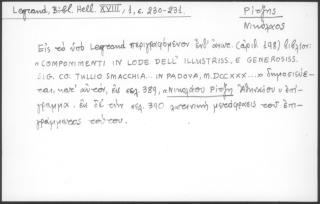 Legrand, Bibl. Hell. XVIII, 1, σ. 230-231.
Ρίτζης
Νικόλαος
Εἰς τὸ ὑπὸ Legrand περιγραφόμενον ὑπ' (ἀριθ. 198) βιβλίον:
« COMPONIMENTI IN LODE DELL' ILLUSTRISS. E GENEROSISS.
SIG. CO: TULLIO SMACCHIA... IN PADOVA, M.DCC.XXX... » δημοσιεύε-
ται, κατ' αὐτόν, ἐν σελ. 389, « Νικολάου Ρίτζη Ἀθηναίου » ἐπί-
γραμμα. ἐν δὲ τῇ σελ. 390 λατινικὴ μετάφρασις τοῦ ἐπι-
γράμματος τούτου.